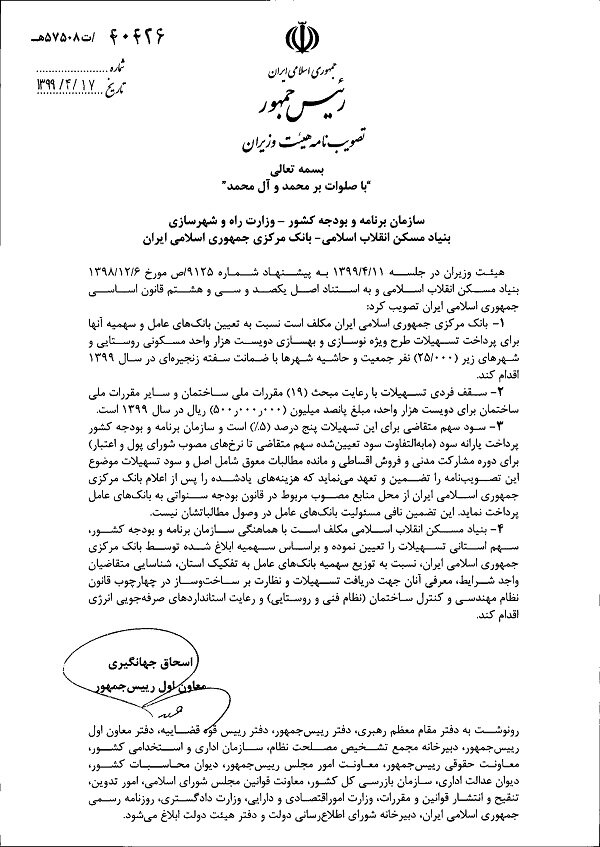 ۴۰۴۲۶ /ت۵۷۵۰۸هـ
شماره
تاریخ ۱۳۹۹/۴/۱۷
جمهوری اسلامی ایران
رئیس جمهور
تصویب نامه هیئت وزیران
بسمه تعالی
"با صلوات بر محمد و آل محمد"
سازمان برنامه و بودجه کشور – وزارت راه و شهرسازی
بنیاد مسکن انقلاب اسلامی- بانک مرکزی جمهوری اسلامی ایران
هیئت وزیران در جلسه ۱۳۹۹/۴/۱۱ به پیشنهاد شماره ۹۱۲۵/ص مورخ ۱۳۹۸/۱۲/۶
بنیاد مسکن انقلاب اسلامی و به استناد اصل یکصد و سی و هشتم قانون اساسی
جمهوری اسلامی ایران تصویب کرد:
۱- بانک مرکزی جمهوری اسلامی ایران مکلف است نسبت به تعیین بانک‌های عامل و سهمیه آنها
برای پرداخت تسهیلات طرح ویژه نوسازی و بهسازی دویست هزار واحد مسکونی روستایی و
شهرهای زیر (۲۵/۰۰۰) نفر جمعیت و حاشیه شهرها با ضمانت سفته زنجیره‌ای در سال ۱۳۹۹
اقدام کند.
۲- سقف فردی تسهیلات با رعایت مبحث (۱۹) مقررات ملی ساختمان و سایر مقررات ملی
ساختمان برای دویست هزار واحد، مبلغ پانصد میلیون (۵۰۰٫۰۰۰٫۰۰۰) ریال در سال ۱۳۹۹ است.
۳- سود سهم متقاضی برای این تسهیلات پنج درصد (۵٪) است و سازمان برنامه و بودجه کشور
پرداخت یارانه سود (مابه‌التفاوت سود تعیین‌شده سهم متقاضی تا نرخ‌های مصوب شورای پول و اعتبار)
برای دوره مشارکت مدنی و فروش اقساطی و مانده مطالبات معوق شامل اصل و سود تسهیلات موضوع
این تصویب‌نامه را تضمین و تعهد می‌نماید که هزینه‌های یادشده را پس از اعلام بانک مرکزی
جمهوری اسلامی ایران از محل منابع مصوب مربوط در قانون بودجه سنواتی به بانک‌های عامل
پرداخت نماید. این تضمین نافی مسئولیت بانک‌های عامل در وصول مطالباتشان نیست.
۴- بنیاد مسکن انقلاب اسلامی مکلف است با هماهنگی سازمان برنامه و بودجه کشور،
سهم استانی تسهیلات را تعیین نموده و براساس سهمیه ابلاغ شده توسط بانک مرکزی
جمهوری اسلامی ایران، نسبت به توزیع سهمیه بانک‌های عامل به تفکیک استان، شناسایی متقاضیان
واجد شرایط، معرفی آنان جهت دریافت تسهیلات و نظارت بر ساخت‌وساز در چهارچوب قانون
نظام مهندسی و کنترل ساختمان (نظام فنی و روستایی) و رعایت استانداردهای صرفه‌جویی انرژی
اقدام کند.
اسحاق جهانگیری
معاون اول رییس‌جمهور
رونوشت به دفتر مقام معظم رهبری، دفتر رییس‌جمهور، دفتر رییس قوه قضاییه، دفتر معاون اول
رییس‌جمهور، دبیرخانه مجمع تشخیص مصلحت نظام، سازمان اداری و استخدامی کشور،
معاونت حقوقی رییس‌جمهور، معاونت امور مجلس رییس‌جمهور، دیوان محاسبات کشور،
دیوان عدالت اداری، سازمان بازرسی کل کشور، معاونت قوانین مجلس شورای اسلامی، امور تدوین،
تنقیح و انتشار قوانین و مقررات، وزارت اموراقتصادی و دارایی، وزارت دادگستری، روزنامه رسمی
جمهوری اسلامی ایران، دبیرخانه شورای اطلاع‌رسانی دولت و دفتر هیئت دولت ابلاغ می‌شود.